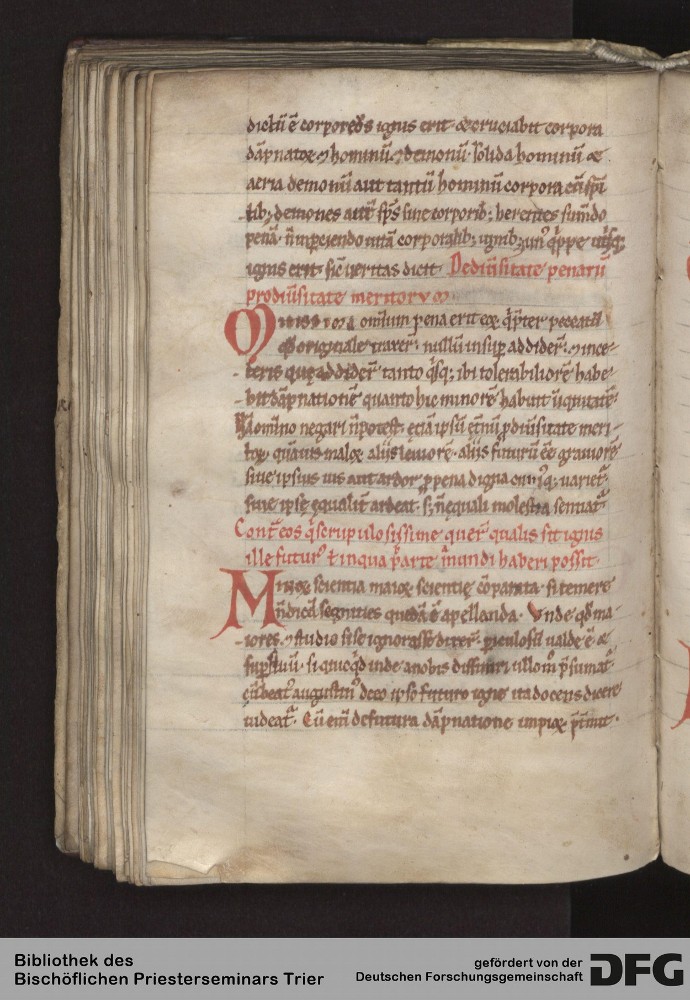 dictū ē corporeꝰs ignis erit· & cruciabit corpora
dāpnatoꝝ ⁊ hominū· ⁊ demonū· solida hominū &
aeria demonū aut tantū hominū corpora cū spī
tib; demones autē sps̄ sine corporib; herentes sumdo
penā· n̄ inperciendo uitā corporalib; ignib; unꝰ q̄ppe utrisq;
ignis erit· sic̄ ueritas dicit· De diūsitate penarū
pro diūsitate meritorum·
Mitissima omnium pena erit eoꝝ q̄ p̄ter peccatū
qd̄ originale traxer̄· nullū insup addider̄· ⁊ in ce-
teris quę addider̄ tanto q̄sq; ibi tolerabiliorē habe-
bit dāpnationē quanto hic minorē habuit iniquitatē·
A domino negari n̄ potest· etiā ipsū et̄nū p diūsitate meri-
toꝝ, quāuis maloꝝ aliis leuiorē· aliis futurū ēe grauiorē
siue ipsius uis aut ardor p pena digna cuiusq; uariet᷑·
siue ipse equalit̄ ardeat· s; n̄ equali molestia sentiat᷑
Cont̄ eos q̄ scrupulosissime querē qualis sit ignis
ille futurꝰ ł in qua parte mundi haberi possit
Minoꝝ scientia maioꝝ scientię cōparata· si temere
n̄ dicā segnities quedā ē apellanda· Unde qd̄ ma-
iores ⁊ studio se se ignorasse dixer̄· periculosū ualde ē &
supfluū· si quicq̄d inde a nobis diffiniri ullomꝰ p̄sumat᷑·
cū beatꝰ augustinꝰ de eo ipso futuro igne ita docens dicere
uideat᷑· Cū enī de futura dāpnatione impioꝝ p̄tmit·
Bibliothek des
Bischöflichen Priesterseminars Trier
gefördert von der
Deutschen Forschungsgemeinschaft
DFG